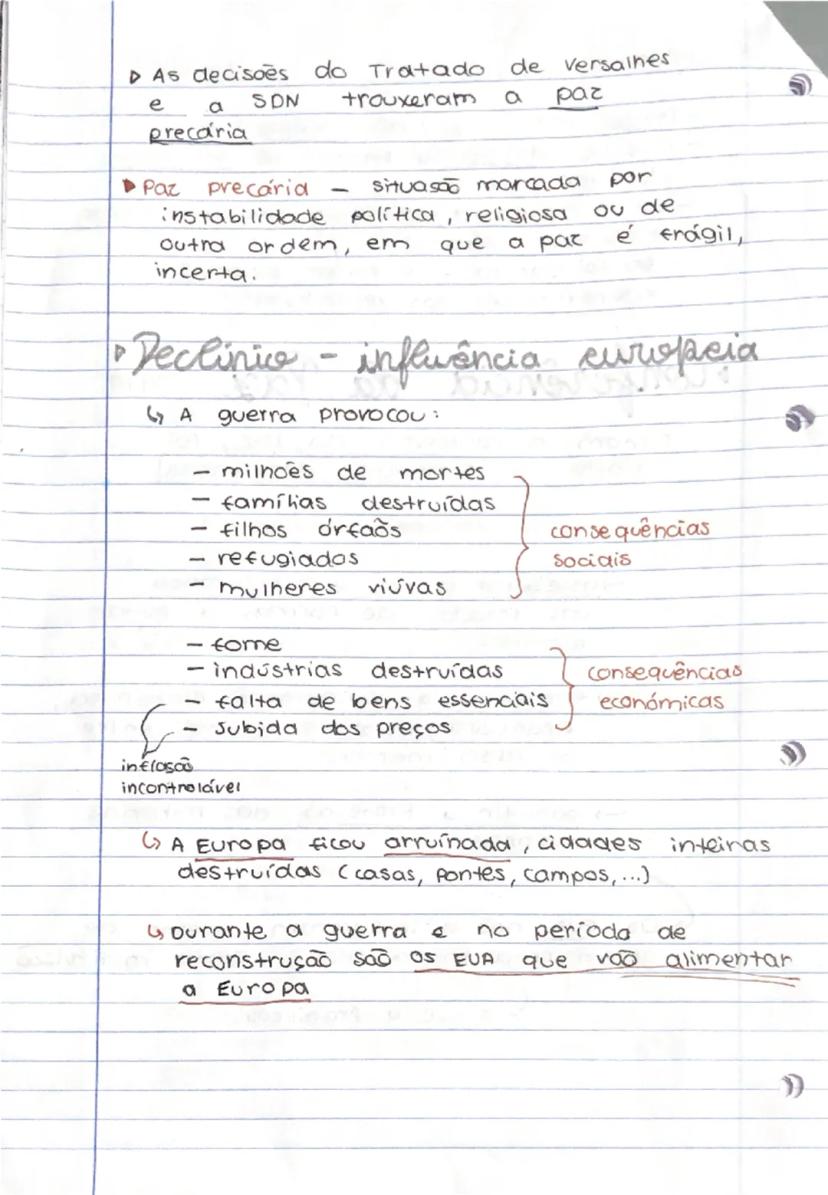 ▷ As decisões do Tratado de Versalhes
e a SDN trouxeram a paz
precária
▶ Paz precária – situasão marcada por
instabilidade política, religiosa ou de
outra ordem, em que a paz é frágil,
incerta.
▷ Declínio – influência europeia
↳ A guerra provocou:
– milhões de mortes
– famílias destruídas
– filhos órfaõs
– refugiados
– mulheres viúvas
consequências
sociais
– fome
– indústrias destruídas
– falta de bens essenciais
– subida dos preços
consequências
económicas
inflasão
incontrolável
↳ A Europa ficou arruínada, cidades inteiras
destruídas (casas, pontes, campos,...)
↳ Durante a guerra e no período de
reconstrução são os EUA que vão alimentar
a Europa